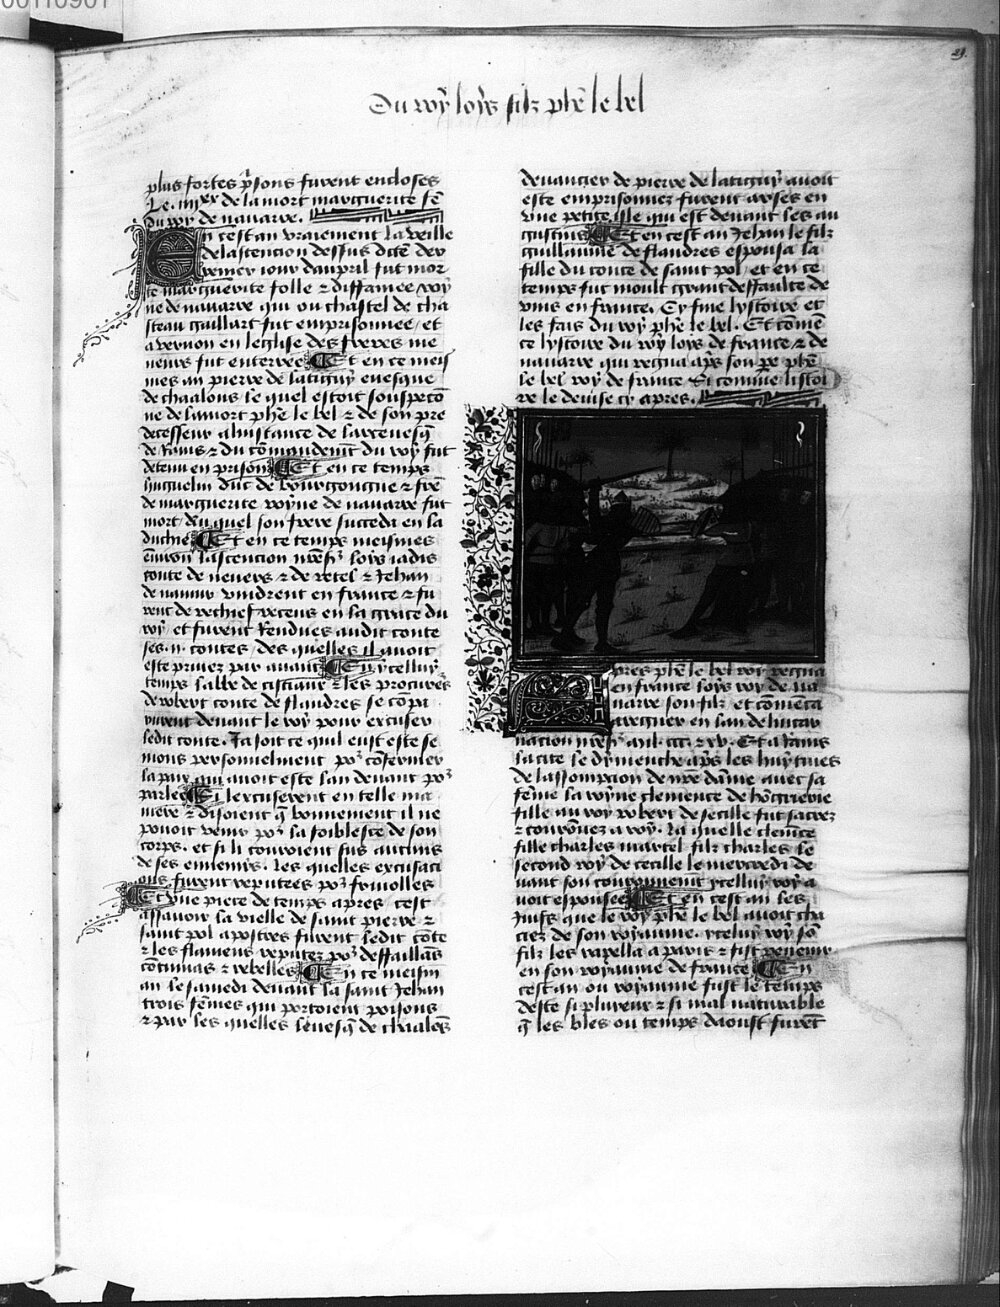 Du roy loys filz phe le bel
plus fortes prisons furent encloses
Le iiiixx de la mort marguerite fe
du roy de navarre.
En cest an vraiement la veille
de lascencion dessus dicte der
renier iour dauril fut mor
te marguerite folle et diffamee roy
ne de nauarre qui ou chastel de cha
steau gaillart fut emprisonnee / et
a vernon en leglise des freres me
neurs fut enterree Et en ce meis
mes an pierre de latigny euesque
de chaalons le quel estoit souspeco
ne de la mort phe le bel et de son pre
decesseur a linstance de larceuesq
de Rains et du commandemt du roy fut
detenu en prison Et en ce temps
huguelin duc de bourgongne et fre
de marguerite royne de nauarre fut
mort Au quel son frere succeda en la
duchie Et en ce temps meismes
enuiron lascencion nres loys iadis
conte de neuers et de retel et Jehan
de namur vindrent en france et fu
rent de rechief receus en la grace du
roy et furent Rendues audit conte
ses ii contes / des quelles il auoit
este priuez par auant En ycellui
temps labbe de cisteaux et les procures
de robert conte de flandres se compa
rurent deuant le roy pour excuser
ledit conte. Ja soit ce quil eust este se
mons personnelment por confermer
la paix qui auoit este lan deuant por
parlee Si lexcuserent en telle ma
niere et disoient q bonnement il ne
pouoit venir por la foiblesce de son
corps. et si li conuient fus aucuns
de ses ennemis. Les quelles excusaci
ons furent reputees por friuolles
Et une piece de temps apres cest
assauoir la vielle de saint pierre et
saint pol apostres furent ledit cote
et les flamens reputez por deffaillas
contumas et rebelles En ce meism
an le samedi deuant la saint Jehan
trois femes qui portoient poisons
et par les quelles leuesq de chaalos
deuancier de pierre de latigny auoit
este emprisonniez furent arses en
vne petite isle qui est deuant les au
gustins Et en cest an Jehan le filz
guillaume de flandres espousa la
fille du conte de saint pol / et en ce
temps fut moult grant deffaulte de
vins en france. Cy fine lystoire et
les fais du roy phe le bel. Et come
ce lystoire du roy loys de france et de
nauarre qui regna aps son pe phe
le bel roy de france Si comme listoi
re le deuise cy apres.
Apres phe le bel roy regna
en france loys roy de na
uarre son filz et comenca
a regner en lan de lincar
nacion nres mil ccc et xv. Et a Rains
la cite le dymenche aps les huytiues
de lassompcion de nre dame auec sa
feme la royne clemence de hogrie
fille au roy robert de secille fut sacrez
et couronnez a roy. La quelle clemece
fille charles martel filz charles le
second roy de cecille le mercredi de
uant son couronnemt ycellui roy a
uoit espousee Et en cest an les
juifs que le roy phe le bel auoit cha
ciez de son royaume. ycelui roy son
filz les rapella a paris et fist reuenir
en son royaume de france En
cest an ou royaume fust le temps
deste si pluieux et si mal naturable
q les bles ou temps daoust furet